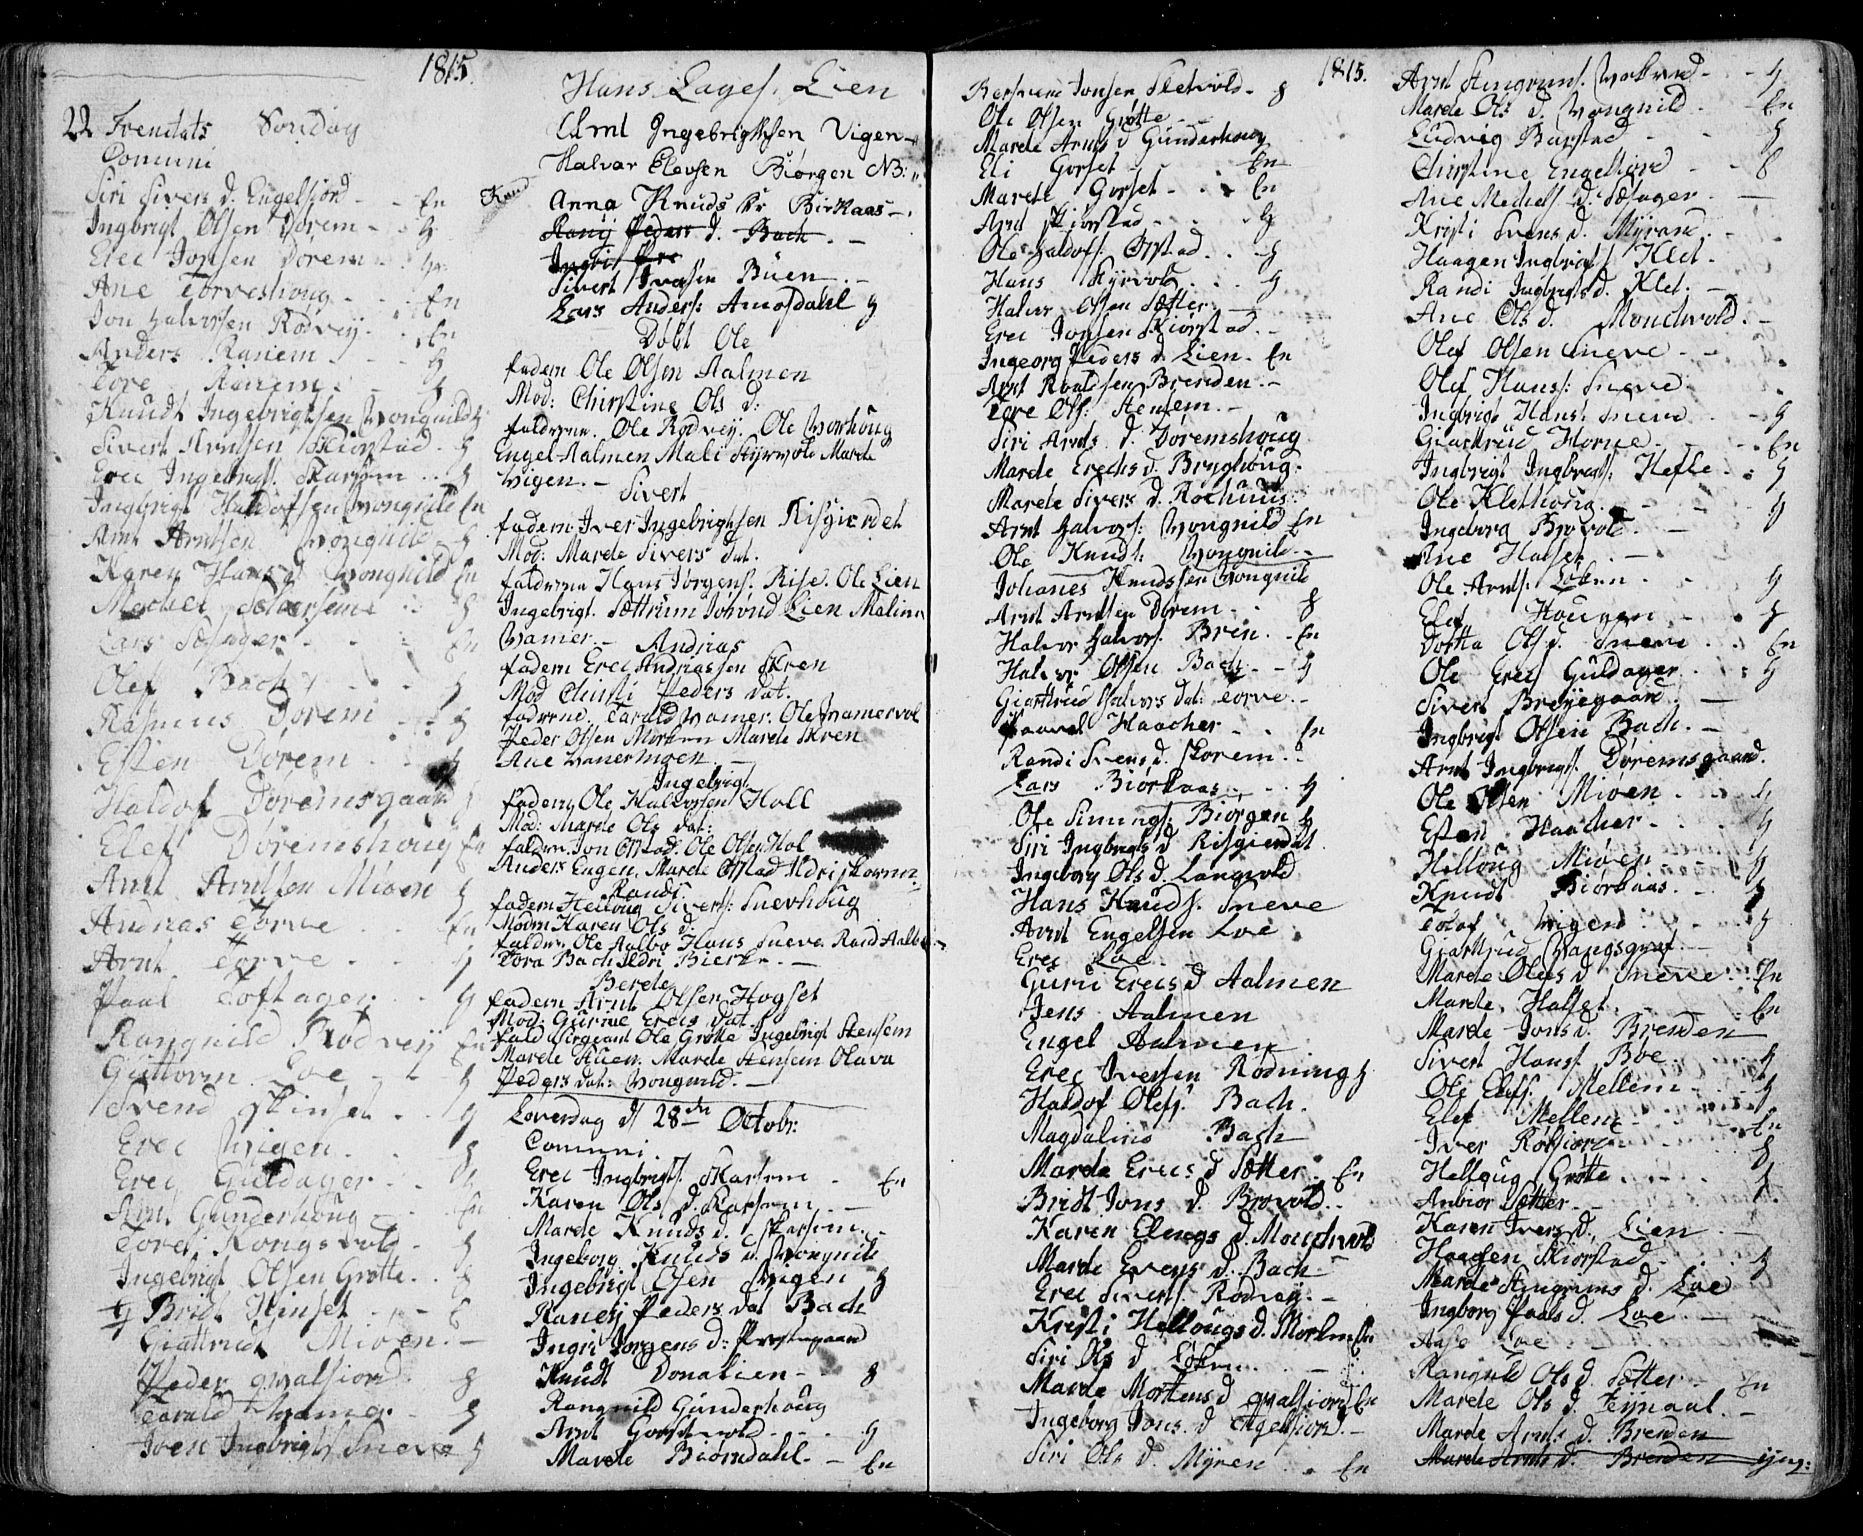 1815.
22 Trenitats Söndag
Comuni
Siri Sivers d. Engelsiord - - En
Ingbrigt Olsen Dörem - - g
Erec Jonsen Dörem
Ane Torveshoug - - En
Jon Halvorsen Rödvey - En
Anders Ranem - - g
Tore Ranem - - g
Knudt Ingebrigtsen Wongnild g
Sivert Arntsen Skiörstad - g
Erec Ingebrigts. Skarsem - - g
Ingbrigt Haldofsen Wongnild En
Arnt Arntsen Wongnild - g
Karen Hans d. Wongnild En
Michel Skarsem - - g
Lars Sæsager - - En
Olef Bach - - g
Rasmus Dörem - - g
Esten Dörem - - g
Haldof Döremsgaard
Elef Döremshoug En
Arnt Arntsen Miöen g
Andrias Torve - - En
Arnt Torve - - g
Paal Toftager - - g
Rangnild Rödvey En
Guttorm Loe - - g
Svend Skinset - - g
Erec Wigen - - g
Erec Guldager - -
Arnt Gunderhoug - - En
Tore Kongsvold - g
Ingebrigt Olsen Grötte - - g
g Bridt Hinset - - g
Giattrudt Miöen. -
Peder Qvalsiord g
Tarald Wamer - g
Iver Ingbrigts. Sneve g
Hans Lages. Lien
Arnt Ingebrigtsen Vigen -
Halvar Elevsen Biörgen NB:
Anna Knuds Dr Birkaas -
Ranij Peders d. Bach. -
Ingbri
Sivert Iversen Büen -
Lars Anders. Amosdahl g
Döbt Ole
fadern Ole Olsen Aalmen
Mod: Christine Ols d:
faldrene. Ole Rödvey. Ole Worhoug
Engel Aalmen Mali Styrvold Marde
Wigen. -
Sivert
fadern Iver Ingebrigtsen Risgierdet
Mod: Marde Sivers dat.
faldrene Hans Jörgens. Rise. Ole Lien
Ingebrigt Sættrum Lien Malina
Wamer. -
Andrias
fadern Erec Andriassen Skren
Mod Christi Peders dat.
fadrene. Tarald Wamer. Ole Wamervol
Peder Olsen Morken Marde Skren
Ane Wanermoen -
Ingebrigt
fadern Ole Halvorsen Holl
Mod: Marde Ols dat:
faldrn. Jon Örstad. Ole Olsen Hol
Anders Engen. Marde Örstad Ildri Skorem
Randi
fadern Helloug Sivers: Snevhoug
Modrn Karen Ols d.
faldrn. Ole Aalbo Hans Sneve. Rand Aalbo
Tora Bach Ildri Bierke. -
Berete
fadern Arnt Olsen Hogset
Mod: Gurine Erecs dat.
fald. Sergeant Ole Grötte Ingebrigt Stensem
Marde Stuen. Marde Stensem Olava
Peders dat: Wongnild. -
Löverdag d 28de Octobr:
Comuni.
Erec Ingbrigts. Skarsem - En
Karen Ols d. Karsem -
Marde Knuds d. Skarsem -
Ingeborg Knuds d. Wongnild
Ingebrigt Olsen Wigen g
Ranei Peders dat Bach
Ingri Jorgens d: Prestegaard
Knudt Donalien - - g
Rangnild Gunderhoug
Arnt Gorsetvold - - g
Marde Biörndahl. - En
1815.
Bersvend Jonsen Sletvold - g
Ole Olsen Grötte -
Marde Arnts d Gunderhoug
Eli Gorset - - En
Marde Gorset - - En
Arnt Skiörstad - - g
Ole Haldofs. Örstad - - g
Hans Styrvold - - g
Halvor Olsen Sætter -
Erec Jonsen Skiörstad. -
Ingeborg Peders d Lien - En
Arnt Roaldsen Brenden. -
Tore Ols. Stensem. -
Siri Arnts d. Döremshoug
Marde Erechs d. Bryghoug.
Marde Sivers d. Rochuus.
Arnt Halvors. Wongnild En
Ole Knudts. Wongnild. -
Johanes Knudssen Wongnild
Arnt Arntsen Dörem - g
Halvor Halvors. Bren - En
Halvor Olsen Bach - - g
Giattrud Halvors dat: Torve. -
Paavel Haacher - - En
Randi Svens d. Skorem. -
Lars Biörkaas - - g
Ole Simings. Biörgen g
Siri Ingbrigts d Risgierdet
Ingeborg Ols d. Langvold
Hans Knuds. Sneve
Arnt Engelsen Loe
Erec Loe
Guru Erecs d Aalmen
Jens Aalmen
Engel Aalmen
Erec Iversen Rödning g
Haldof Olefs. Bach.
Magdalina Bach
Marde Erecs d Sætter - En
Bridt Jons d. Brovold. -
Karen Elengs d. Mouchvold
Marde Evens d. Bach
Erec Sivers. Rödvey. -
Kristi Hellougs d. Morken En
Siri Ols d. Löken -
Marde Mortens d Qvalsiord En
Ingeborg Jons. d Engelsiord. -
Siri Ols d. Myren - En
Arnt Stengrims. Wolvud - - g
Marde Ols d. Wongnild - En
Ludvig Bapstad - - g
Christine Engelsiord - - g
Ane Michels d. Sæsager -
Kristi Svens d. Myrand. -
Haagen Ingbrigts. Klet. -
Randi Ingbrigts d. Klet. -
Ane Ols d. Mouchvold. -
Olef Olsen Sneve -
Olef Hans: Sneve
Ingbrigt Hans. Sneve - g
Giærttrud Horne - - En
Ingbrigt Ingbrigts. Hefle - g
Ole Klethoug - - g
Ingeborg Brovold -
Ane Halset. -
Ole Arnts. Löken - - g
Elef Hougen - - g
Dortta Ols d. Sneve - - En
Ole Erecs Guldager - - g
Sivert Bröyegaard -
Ingbrigt Olsen Bach. -
Arnt Ingbrigts. Döremsgaard.
Ole Olsen Miöen -
Esten Haacher - - g
Helloug Miöen - g
Knudt Biörkaas. - g
Tolof Wigen - g
Giærttrud Wangsgraf -
Marde Olecs d. Sneve. En
Marde Halset. - En
Marde Jons d. Brenden
Sivert Hans. Boe - g
Ole Elefs. Mellem - - g
Elef Mellem - En
Iver Rotsiord - g
Helloug Grötte - - g
Anbior Sætter -
Karen Ivers d. Lien -
Haagen Skiörstad - - g
Marde Stengrims d. Loe
Ingborg Paals d. Loe. -
Aase Loe -
Rangnild Ols d. Sætter - En
Marde Ols d. Teynaal. -
Marde Arnts d. Brenden
Marde Arnts d. Brenden